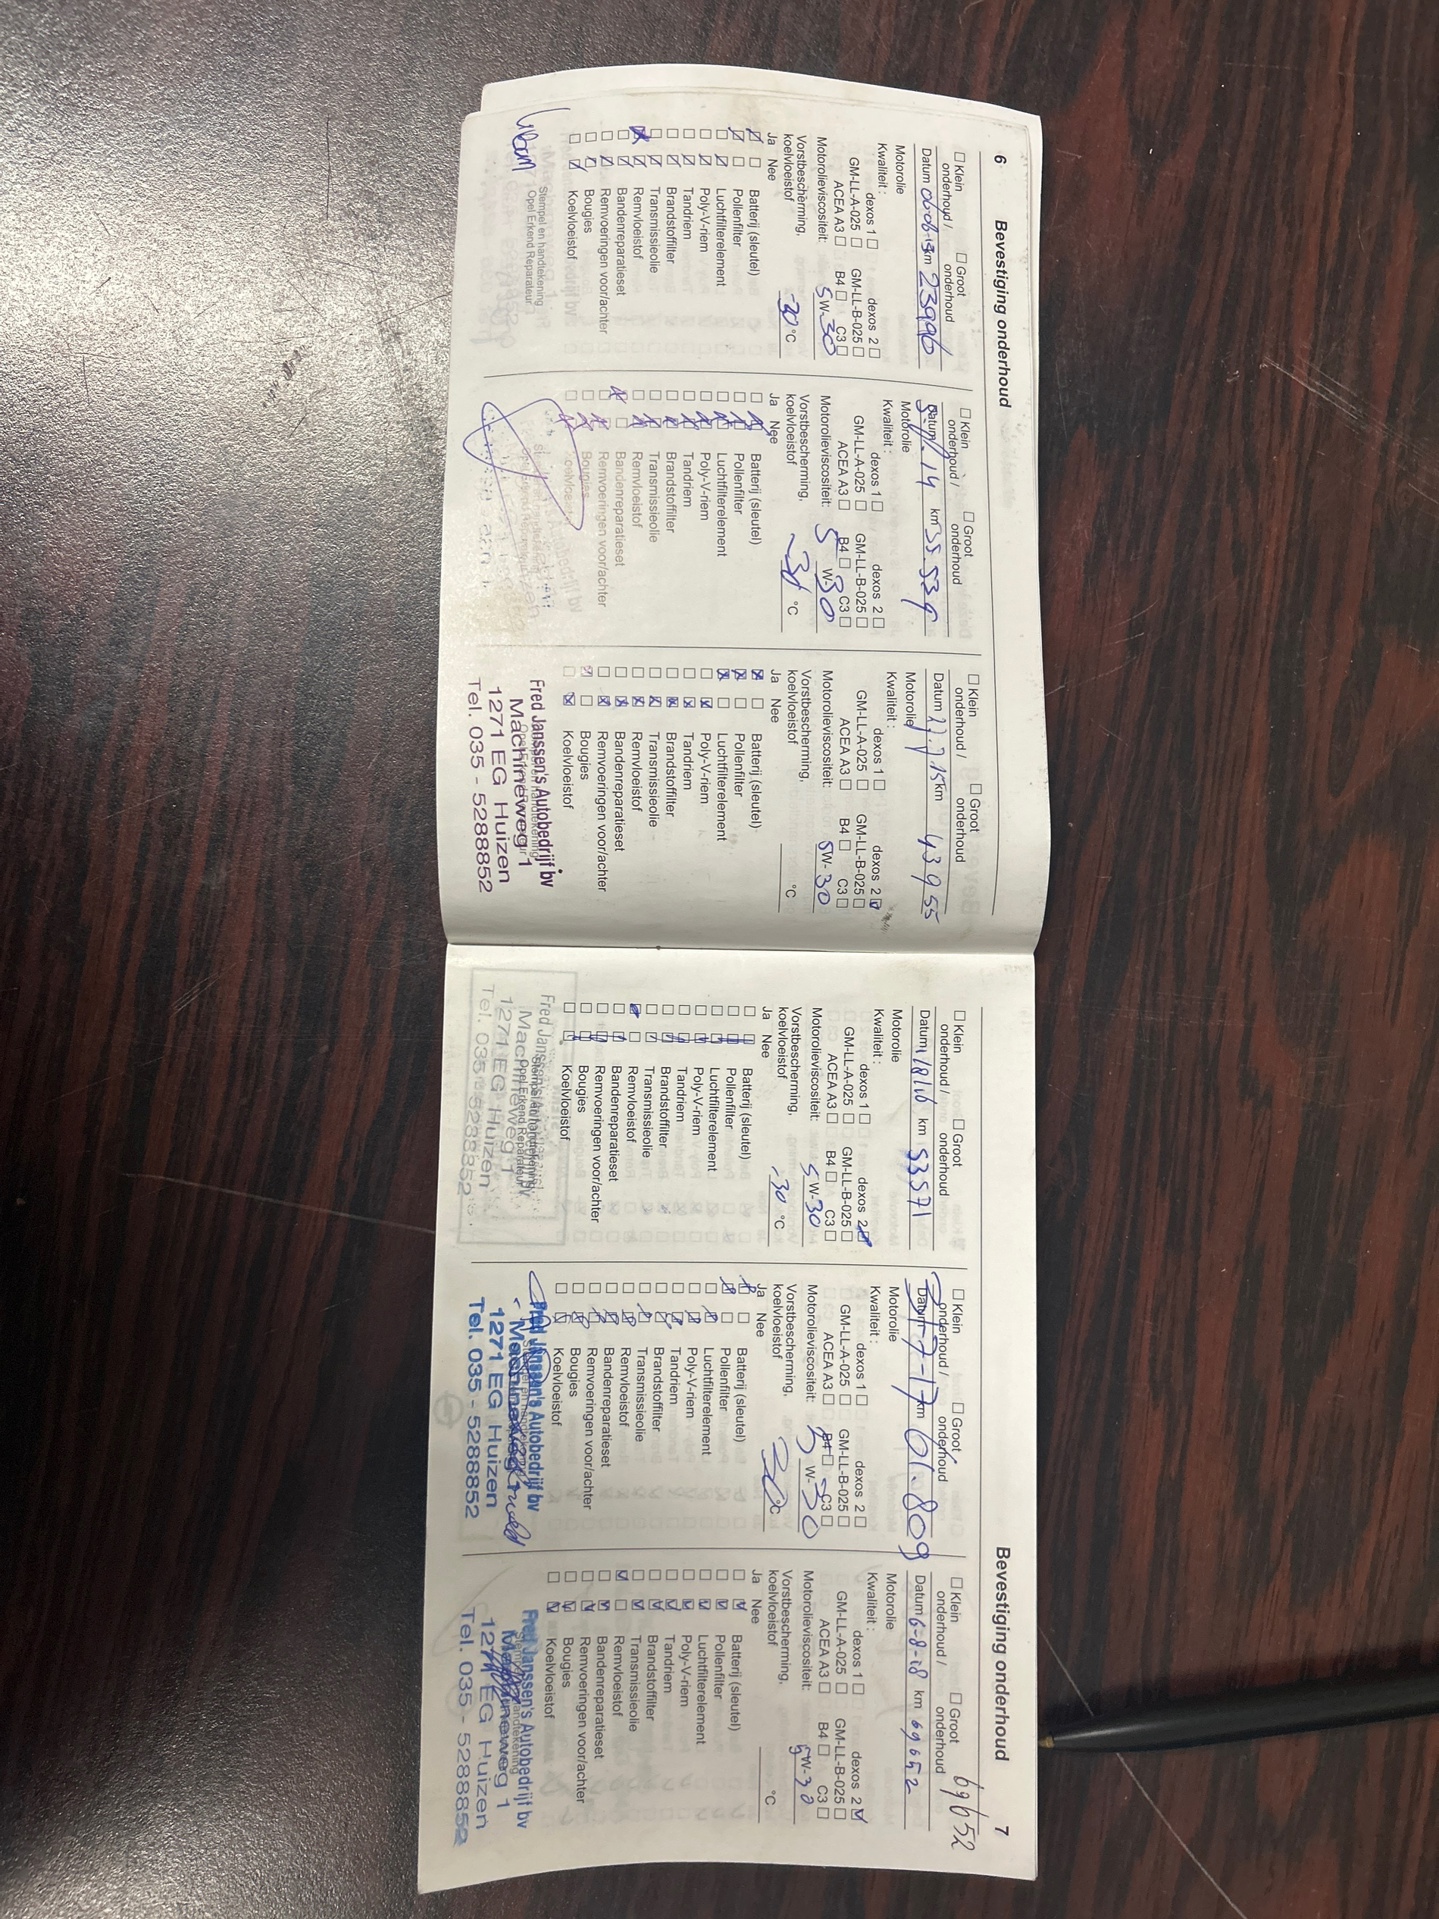 6 Bevestiging onderhoud
☐ Klein onderhoud / ☐ Groot onderhoud
Datum km 23996
Motorolie
Kwaliteit :
dexos 1 ☐ dexos 2 ☐
GM-LL-A-025 ☐ GM-LL-B-025 ☐
ACEA A3 ☐ B4 ☐ C3 ☐
Motorolieviscositeit: 5W-30
Vorstbescherming,
koelvloeistof -30 °C
Ja Nee
☒ ☐ Batterij (sleutel)
☒ ☐ Pollenfilter
☐ ☒ Luchtfilterelement
☐ ☒ Poly-V-riem
☐ ☒ Tandriem
☐ ☒ Brandstoffilter
☐ ☒ Transmissieolie
Remvloeistof
☐ ☒ Bandenreparatieset
☐ ☒ Remvoeringen voor/achter
☐ ☒ Bougies
☐ ☒ Koelvloeistof
Stempel en handtekening
Opel Erkend Reparateur
☐ Klein onderhoud / ☐ Groot onderhoud
Datum 14 km 35.539
Motorolie
Kwaliteit :
dexos 1 ☐ dexos 2 ☐
GM-LL-A-025 ☐ GM-LL-B-025 ☐
ACEA A3 ☐ B4 ☐ C3 ☐
Motorolieviscositeit: 5 W-30
Vorstbescherming,
koelvloeistof °C
Ja Nee
☐ ☒ Batterij (sleutel)
☐ ☒ Pollenfilter
☐ ☒ Luchtfilterelement
☐ ☒ Poly-V-riem
☐ ☒ Tandriem
☐ ☒ Brandstoffilter
☐ ☒ Transmissieolie
☐ ☒ Remvloeistof
☒ ☐ Bandenreparatieset
☐ ☒ Remvoeringen voor/achter
☐ ☒ Bougies
☐ ☒ Koelvloeistof
☐ Klein onderhoud / ☐ Groot onderhoud
Datum 15 km 43955
Motorolie
Kwaliteit :
dexos 1 ☐ dexos 2 ☑
GM-LL-A-025 ☐ GM-LL-B-025 ☐
ACEA A3 ☐ B4 ☐ C3 ☐
Motorolieviscositeit: 5W-30
Vorstbescherming,
koelvloeistof °C
Ja Nee
☒ ☐ Batterij (sleutel)
☒ ☐ Pollenfilter
☒ ☐ Luchtfilterelement
☐ ☒ Poly-V-riem
☐ ☒ Tandriem
☐ ☒ Brandstoffilter
☐ ☒ Transmissieolie
☐ ☒ Remvloeistof
☐ ☒ Bandenreparatieset
☐ ☒ Remvoeringen voor/achter
☒ ☐ Bougies
☐ ☒ Koelvloeistof
Fred Janssen's Autobedrijf bv
Machineweg 1
1271 EG Huizen
Tel. 035 - 5288852
Bevestiging onderhoud 7
☐ Klein onderhoud / ☐ Groot onderhoud
Datum 1/8/16 km 53571
Motorolie
Kwaliteit :
dexos 1 ☐ dexos 2 ☑
GM-LL-A-025 ☐ GM-LL-B-025 ☐
ACEA A3 ☐ B4 ☐ C3 ☐
Motorolieviscositeit: 5 W-30
Vorstbescherming,
koelvloeistof -30 °C
Ja Nee
☐ ☑ Batterij (sleutel)
☐ ☑ Pollenfilter
☐ ☑ Luchtfilterelement
☐ ☑ Poly-V-riem
☐ ☑ Tandriem
☐ ☑ Brandstoffilter
☐ ☑ Transmissieolie
☑ ☐ Remvloeistof
☐ ☑ Bandenreparatieset
☐ ☑ Remvoeringen voor/achter
☐ ☑ Bougies
☐ ☑ Koelvloeistof
Fred Janssen's Autobedrijf bv
Machineweg 1
1271 EG Huizen
Tel. 035 - 5288852
☐ Klein onderhoud / ☐ Groot onderhoud
Datum 7-17 km 61.809
Motorolie
Kwaliteit :
dexos 1 ☐ dexos 2 ☐
GM-LL-A-025 ☐ GM-LL-B-025 ☐
ACEA A3 ☐ B4 ☐ C3 ☐
Motorolieviscositeit: 5 W-30
Vorstbescherming,
koelvloeistof 30 °C
Ja Nee
☑ ☐ Batterij (sleutel)
☑ ☐ Pollenfilter
☐ ☑ Luchtfilterelement
☐ ☑ Poly-V-riem
☐ ☑ Tandriem
☐ ☑ Brandstoffilter
☐ ☑ Transmissieolie
☐ ☑ Remvloeistof
☐ ☑ Bandenreparatieset
☐ ☑ Remvoeringen voor/achter
☐ ☑ Bougies
☐ ☑ Koelvloeistof
Fred Janssen's Autobedrijf bv
Machineweg 1
1271 EG Huizen
Tel. 035 - 5288852
69652
☐ Klein onderhoud / ☐ Groot onderhoud
Datum 6-8-18 km 69652
Motorolie
Kwaliteit :
dexos 1 ☐ dexos 2 ☑
GM-LL-A-025 ☐ GM-LL-B-025 ☐
ACEA A3 ☐ B4 ☐ C3 ☐
Motorolieviscositeit: 5W-30
Vorstbescherming,
koelvloeistof °C
Ja Nee
☐ ☑ Batterij (sleutel)
☐ ☑ Pollenfilter
☐ ☑ Luchtfilterelement
☐ ☑ Poly-V-riem
☐ ☑ Tandriem
☐ ☑ Brandstoffilter
☐ ☑ Transmissieolie
☑ ☐ Remvloeistof
☐ ☑ Bandenreparatieset
☐ ☑ Remvoeringen voor/achter
☐ ☑ Bougies
☐ ☑ Koelvloeistof
Fred Janssen's Autobedrijf bv
Machineweg 1
1271 EG Huizen
Tel. 035 - 5288852